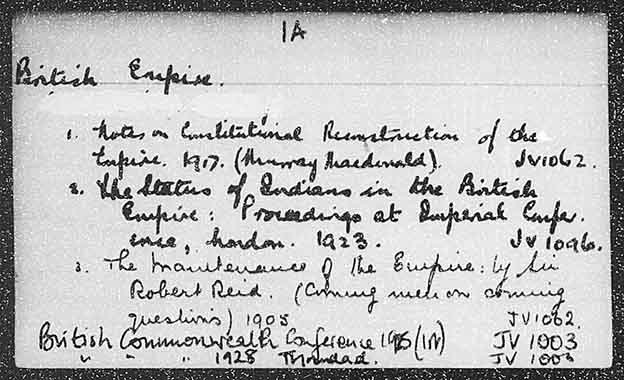 1A
British Empire.
1. Notes on Constitutional Reconstruction of the
Empire. 1917. (Murray Macdonald). JV1062.
2. The Status of Indians in the British
Empire: Proceedings at Imperial Confer-
ence, London. 1923. JV1096.
3. The Maintenance of the Empire: by Sir
Robert Reid. (Coming men on coming
questions) 1905 JV1062.
British Commonwealth Conference (IN) JV 1003
" " " 1928 JV 1003